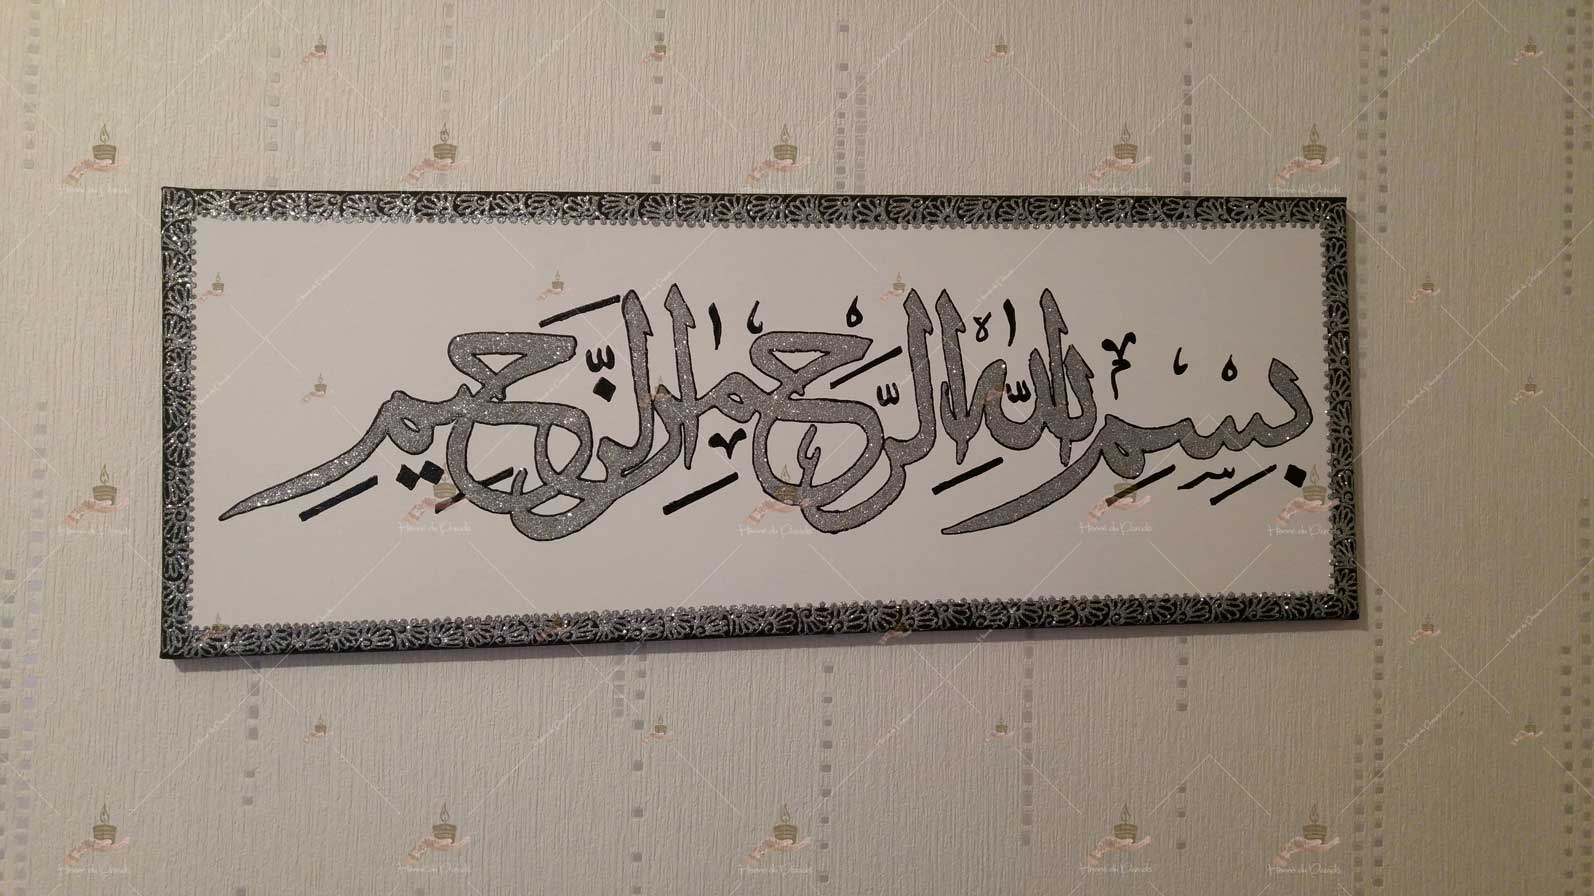 بِسْمِ اللّٰهِ الرَّحْمٰنِ الرَّحِيمِ
Henné du Paradis